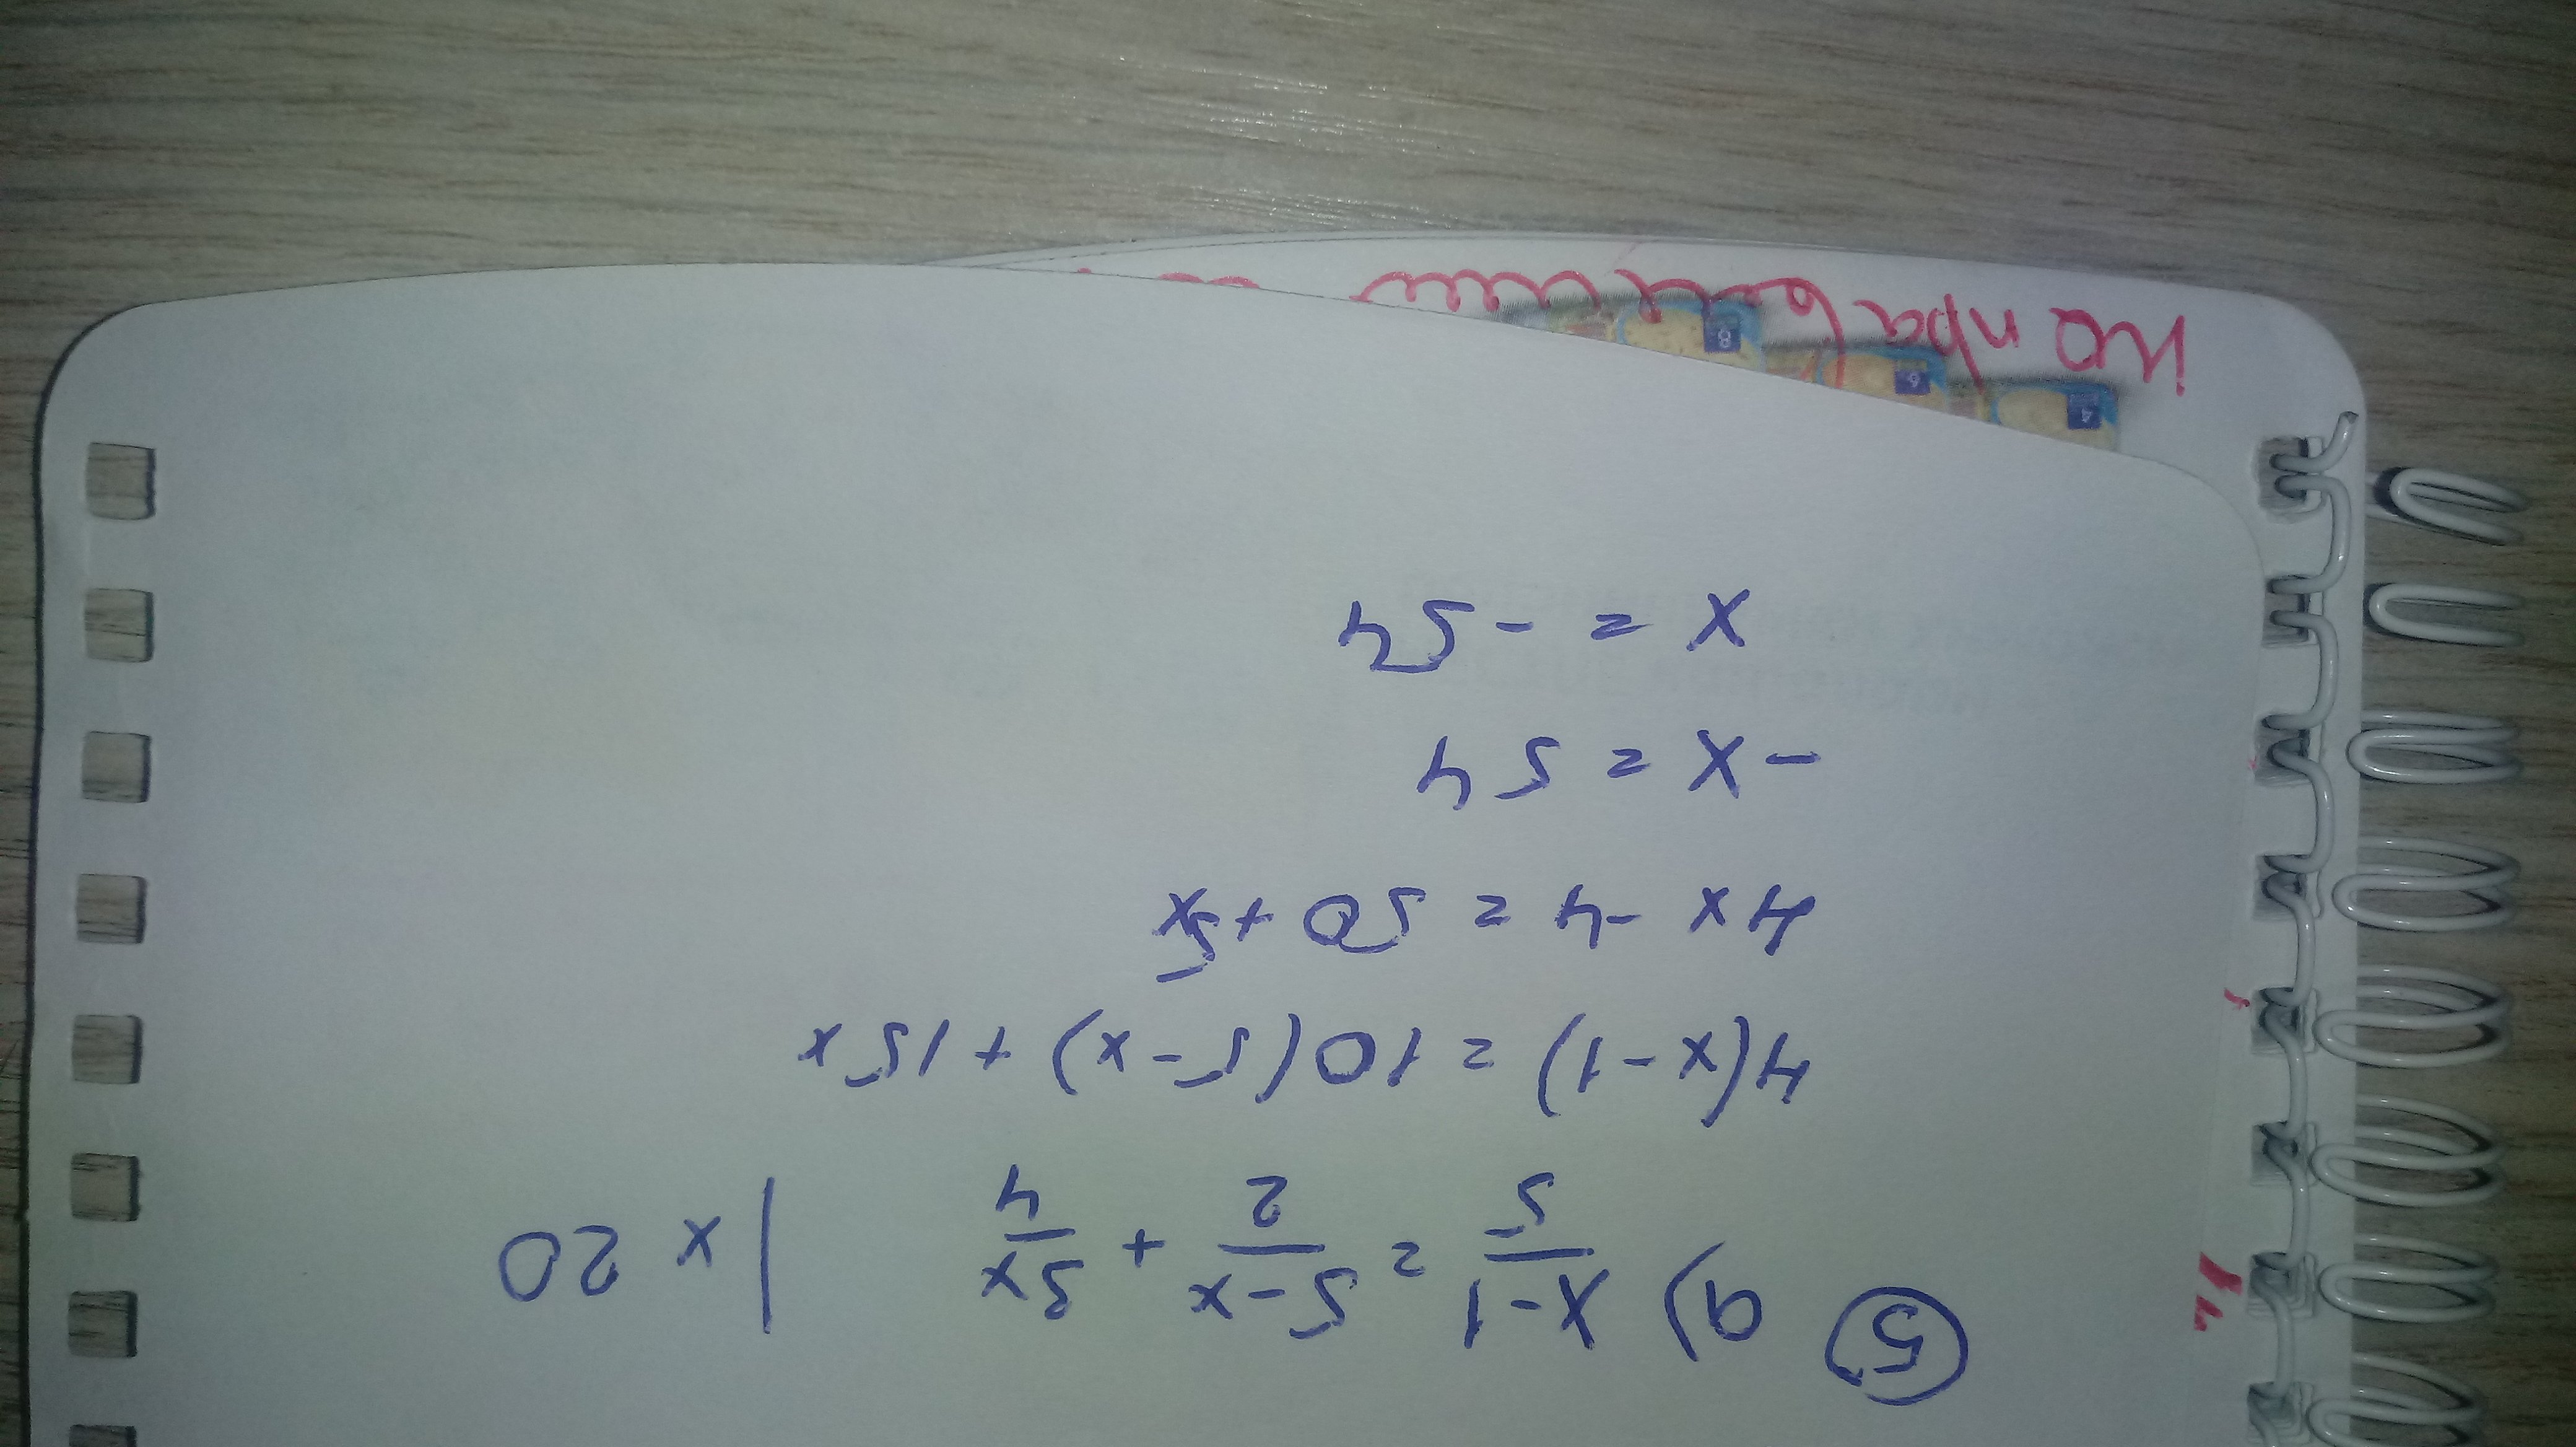 5 a) x-1/5 = 5-x/2 + 3x/4 | x 20
4(x-1) = 10(5-x) + 15x
4x -4 = 50 +5x
-x = 54
x = -54
4
6
8